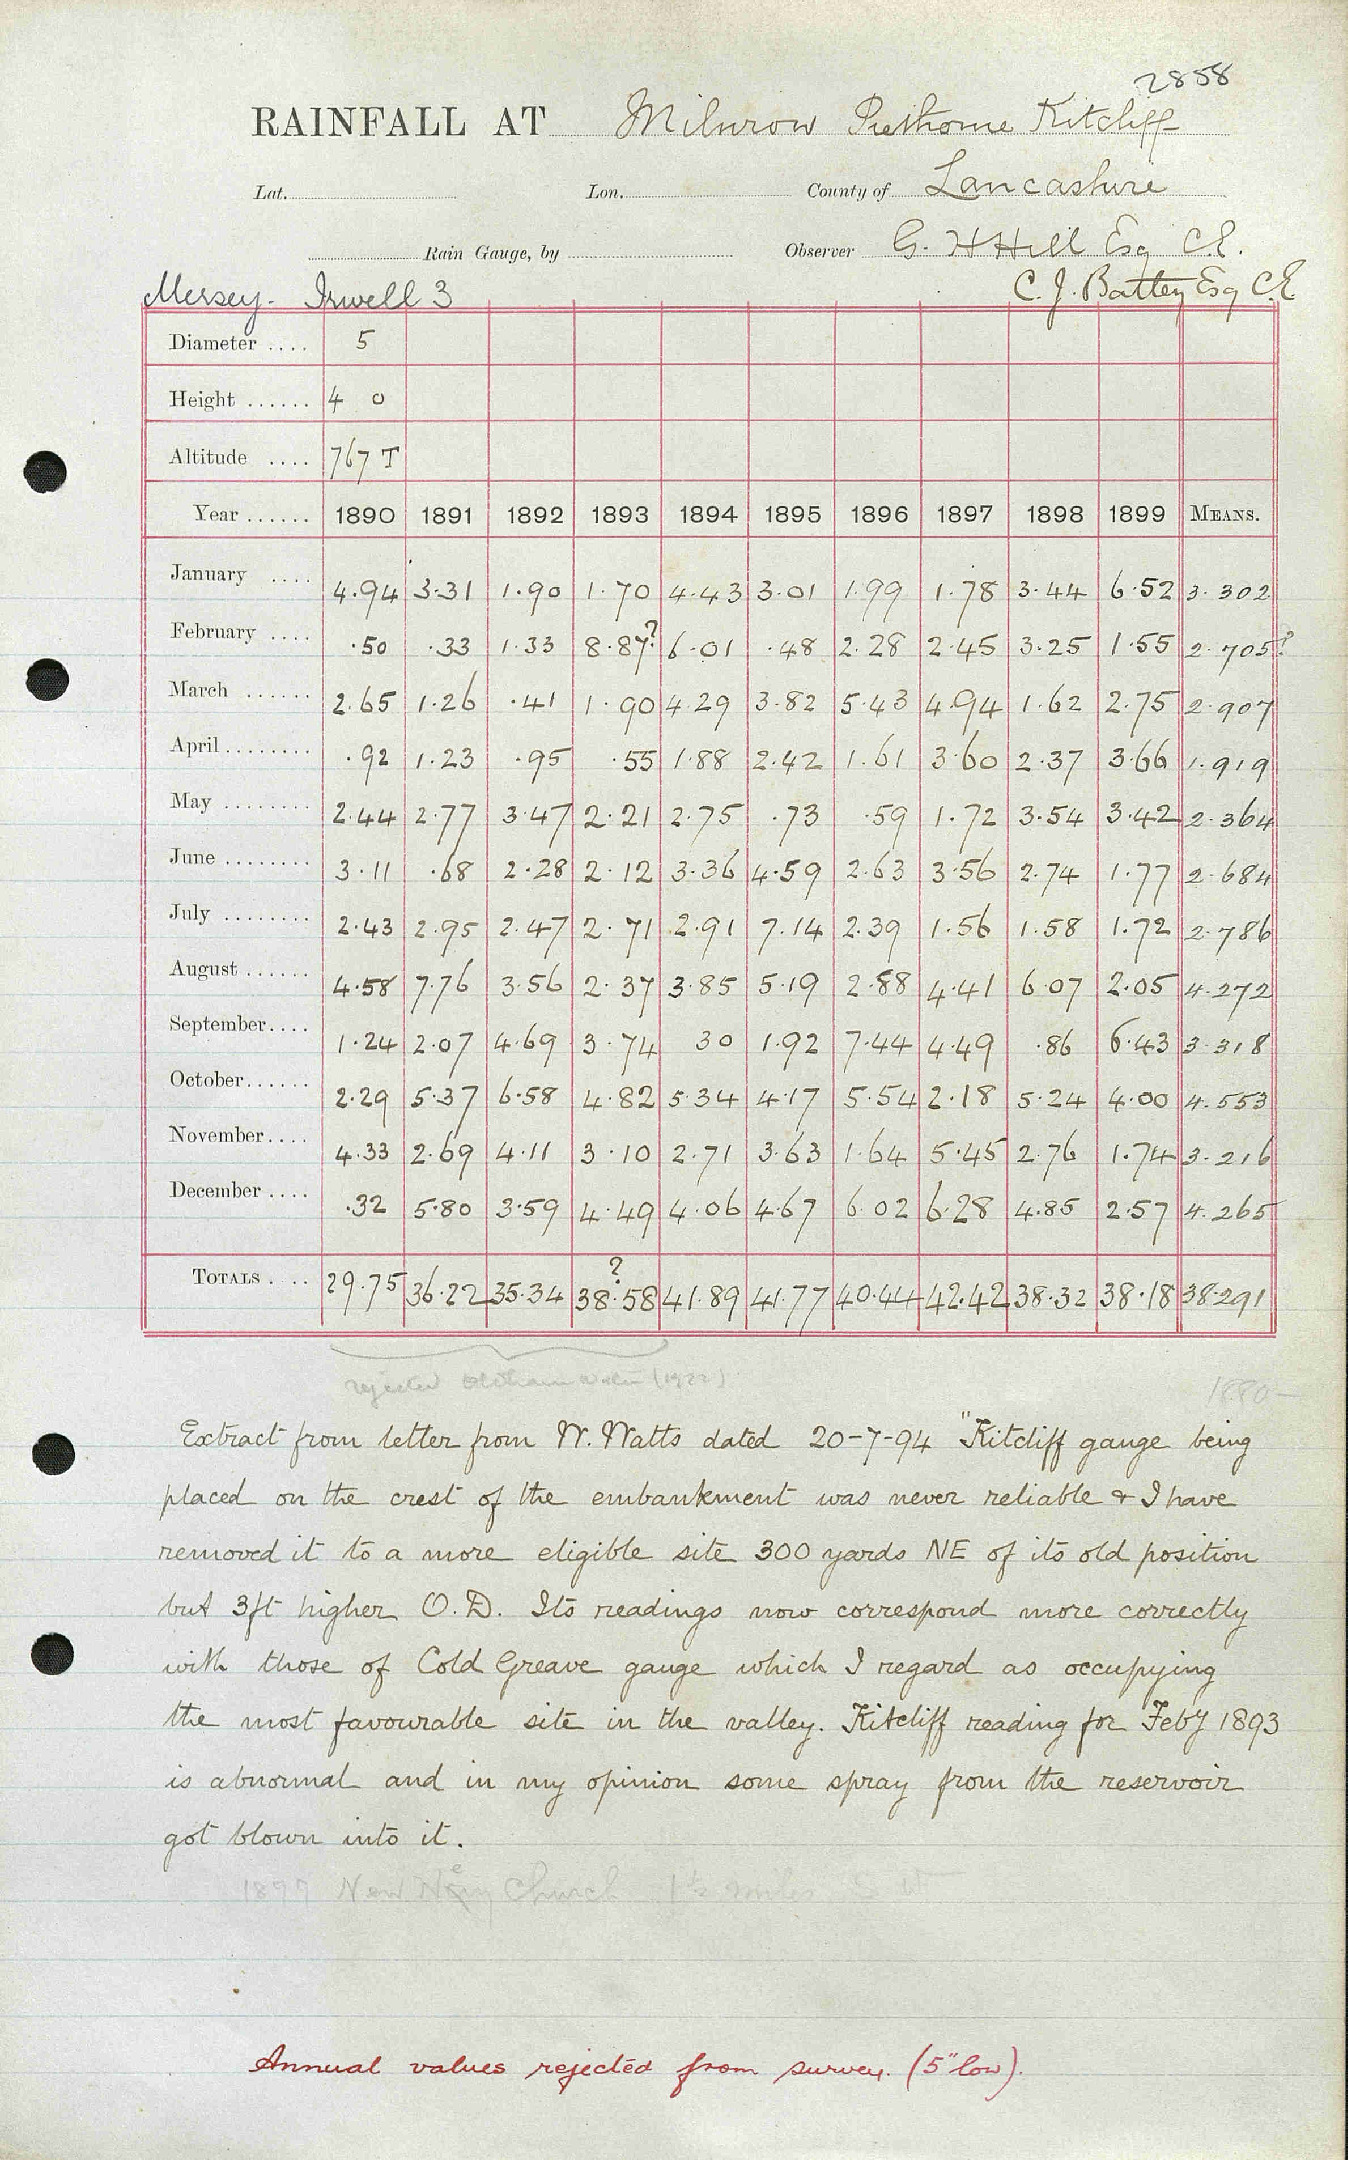 2858
RAINFALL AT Milnrow Piethorne Kitcliff
Lat. Lon. County of Lancashire
Rain Gauge, by Observer G. H Hill Esq C.E.
Mersey. Irwell 3 C. J. Battey Esq C.E
Diameter .... 5
Height ...... 4 0
Altitude .... 767 T
Year ...... 1890 1891 1892 1893 1894 1895 1896 1897 1898 1899 MEANS.
January .... 4.94 3.31 1.90 1.70 4.43 3.01 1.99 1.78 3.44 6.52 3.302
February .... .50 .33 1.33 8.87? 6.01 .48 2.28 2.45 3.25 1.55 2.705?
March ...... 2.65 1.26 .41 1.90 4.29 3.82 5.43 4.94 1.62 2.75 2.907
April ........ .92 1.23 .95 .55 1.88 2.42 1.61 3.60 2.37 3.66 1.919
May ........ 2.44 2.77 3.47 2.21 2.75 .73 .59 1.72 3.54 3.42 2.364
June ........ 3.11 .68 2.28 2.12 3.36 4.59 2.63 3.56 2.74 1.77 2.684
July ........ 2.43 2.95 2.47 2.71 2.91 7.14 2.39 1.56 1.58 1.72 2.786
August ...... 4.58 7.76 3.56 2.37 3.85 5.19 2.88 4.41 6.07 2.05 4.272
September.... 1.24 2.07 4.69 3.74 30 1.92 7.44 4.49 .86 6.43 3.318
October...... 2.29 5.37 6.58 4.82 5.34 4.17 5.54 2.18 5.24 4.00 4.553
November.... 4.33 2.69 4.11 3.10 2.71 3.63 1.64 5.45 2.76 1.74 3.216
December .... .32 5.80 3.59 4.49 4.06 4.67 6.02 6.28 4.85 2.57 4.265
TOTALS . ... 29.75 36.22 35.34 38.58? 41.89 41.77 40.44 42.42 38.32 38.18 38.291
rejected Oldham Water (1922) 1880-
Extract from letter from W. Watts dated 20-7-94 "Kitcliff gauge being
placed on the crest of the embankment was never reliable & I have
removed it to a more eligible site 300 yards NE of its old position
but 3ft higher O.D. Its readings now correspond more correctly
with those of Cold Greave gauge which I regard as occupying
the most favourable site in the valley. Kitcliff reading for Feby 1893
is abnormal and in my opinion some spray from the reservoir
got blown into it.
1897 New Hey Church 1½ miles S W
Annual values rejected from survey. (5" low).